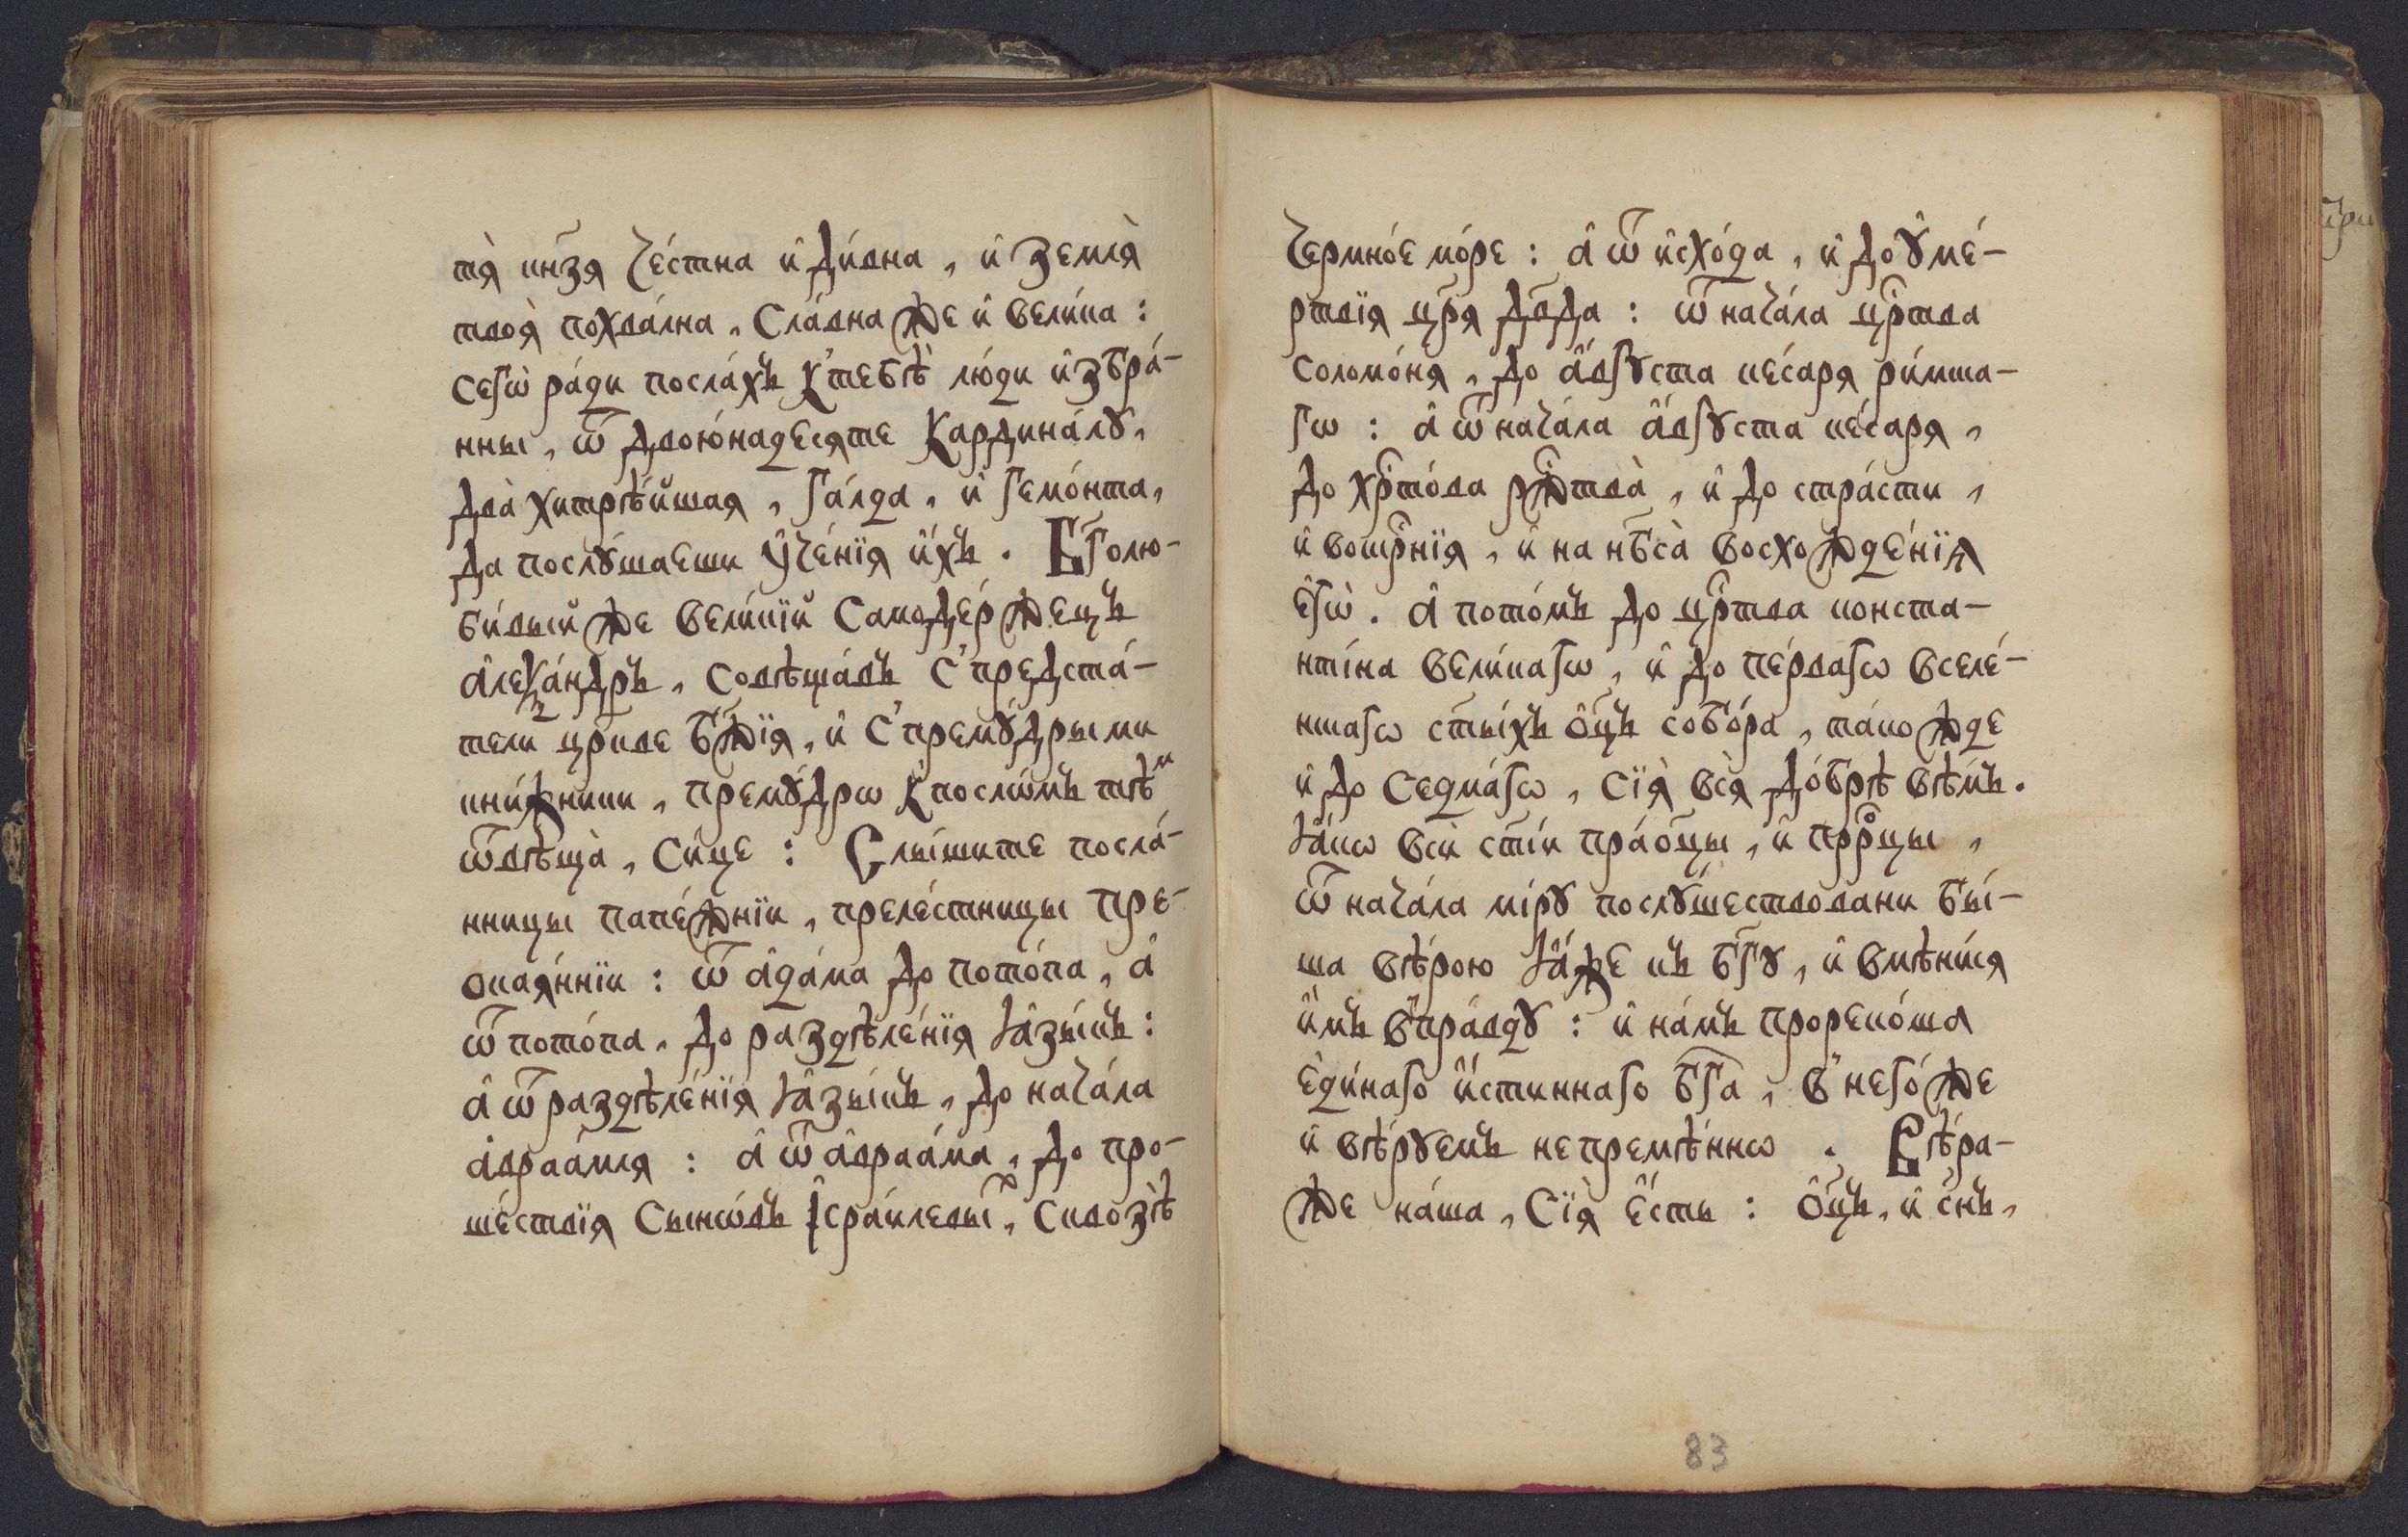 тѧ̀ кн҃зѧ че́стна и҆ ди́вна , и҆ землѧ̀
твоѧ̀ похва́лна , сла́вна же и҆ вели́ка :
сегѡ̀ ра́ди посла́хъ к̾тебѣ̀ лю́ди и҆збра́-
нны , ѿ двоюна́десѧте кардина́лꙋ ,
два̀ хитрѣ́йшаѧ , га́лда , и҆ гемо́нта ,
да послꙋ́шаеши ᲂу҆че́нїѧ и҆́хъ . Бг҃олю-
би́вый же вели́кїй самоде́ржецъ
а҆леѯа́ндръ , совѣща́въ с̾предста́-
тели цр҃кве бж҃їѧ , и҆ с̾премꙋ́дрыми
кни́жники , премꙋ́дрѡ к̾послѡ́мъ тѣⷨ
ѿвѣща̀ , си́це : Слы́шите посла́-
нницы папе́жнїи , преле́стницы пре-
окаѧ́ннїи : ѿ а҆да́ма до пото́па , а҆
ѿ пото́па , до раздѣле́нїѧ ꙗ҆зы́къ :
а҆ ѿ раздѣле́нїѧ ꙗ҆зы́къ , до нача́ла
а҆враа́млѧ : а҆ ѿ а҆враа́ма , до про-
ше́ствїѧ сынѡ́въ і҆сра́илевыⷯ , сквозѣ̀
чермно́е мо́ре : а҆ ѿ и҆схо́да , и҆ до ꙋ҆ме́-
ртвїѧ цр҃ѧ дв҃да : ѿ нача́ла црⷭ҇тва
соломо́нѧ , до а҆́вгꙋста ке́сарѧ ри́мска-
гѡ : а҆ ѿ нача́ла а҆́вгꙋста ке́сарѧ ,
до хрⷭ҇то́ва ржⷭ҇тва̀ , и҆ до стра́сти ,
и҆ воскрⷭ҇нїѧ , и҆ на нб҃са̀ восхожде́нїѧ
є҆гѡ̀ . а҆ пото́мъ до црⷭ҇тва конста-
нті́на вели́кагѡ , и҆ до пе́рвагѡ вселе́-
нскагѡ ст҃ы́хъ ѻ҆ц҃ъ собо́ра , та́кожде
и҆ до седма́гѡ , сїѧ̀ всѧ̀ до́брѣ вѣ́мъ .
Ꙗ҆́кѡ всѝ ст҃і́и пра́ѻц҃ы , и҆ прⷪ҇рцы ,
ѿ нача́ла мі́рꙋ послꙋ́шествовани бы́-
ша вѣ́рою ꙗ҆́же къ бг҃ꙋ , и҆ вмѣни́сѧ
и҆̀мъ в̾пра́вдꙋ : и҆ на́мъ пророко́ша
є҆ди́наго и҆́стиннаго бг҃а , в̾него́же
и҆ вѣ́рꙋемъ непремѣ́ннѡ . Вѣ́ра-
же на́ша , сїѧ̀ є҆́сть : ѻ҆ц҃ъ , и҆ сн҃ъ ,
83